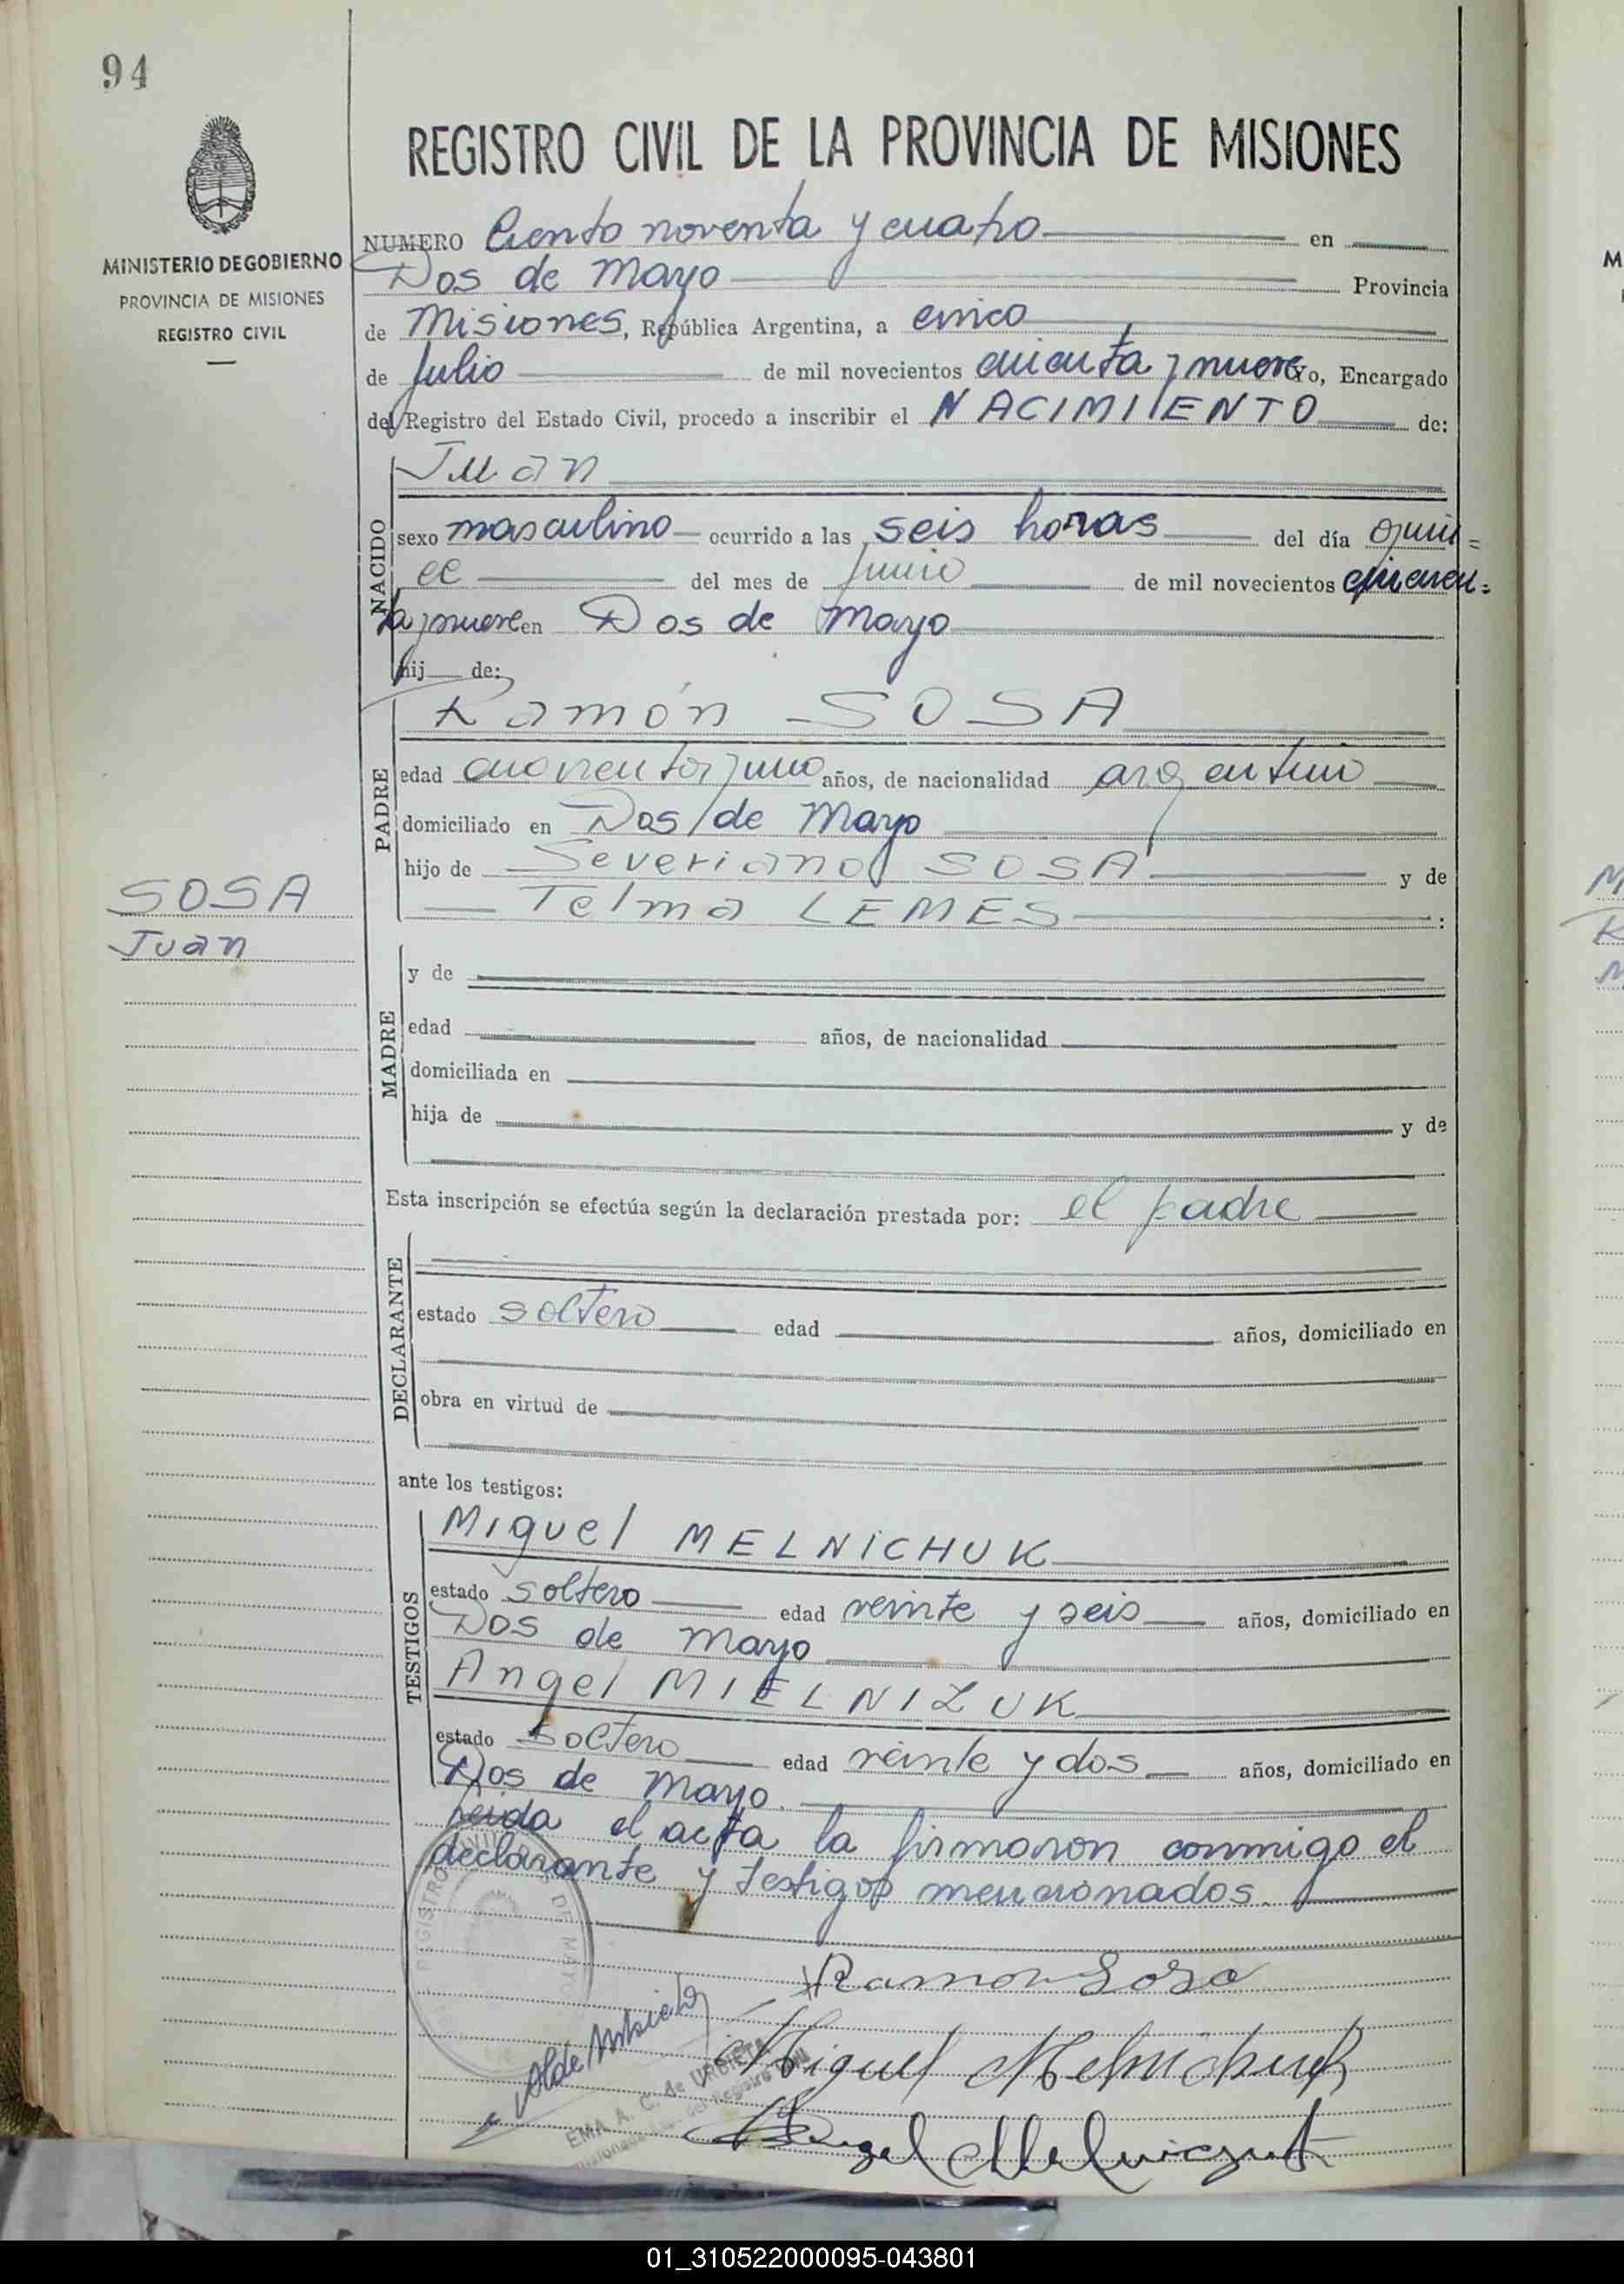 94
REGISTRO CIVIL DE LA PROVINCIA DE MISIONES
MINISTERIO DE GOBIERNO
PROVINCIA DE MISIONES
REGISTRO CIVIL
NUMERO Ciento noventa y cuatro en
Dos de Mayo Provincia
de Misiones, República Argentina, a cinco
de Julio de mil novecientos cincuenta y nueve Yo, Encargado
del Registro del Estado Civil, procedo a inscribir el NACIMIENTO de:
NACIDO
Juan
sexo masculino ocurrido a las seis horas del día quin=
ce del mes de junio de mil novecientos cincuen=
ta y nueve en Dos de Mayo
hij de:
PADRE
Ramón SOSA
edad cuarenta y uno años, de nacionalidad argentino
domiciliado en Dos de Mayo
hijo de Severiano SOSA y de
Telma LEMES
SOSA
Juan
MADRE
y de
edad años, de nacionalidad
domiciliada en
hija de y de
Esta inscripción se efectúa según la declaración prestada por: el padre
DECLARANTE
estado soltero edad años, domiciliado en
obra en virtud de
ante los testigos:
TESTIGOS
Miguel MELNICHUK
estado soltero edad veinte y seis años, domiciliado en
Dos de Mayo
Angel MIELNIZUK
estado soltero edad veinte y dos años, domiciliado en
Dos de Mayo.
Leida el acta la firmaron conmigo el
declarante y testigos mencionados.
Ramon Sosa
Miguel Melnichuk
EMA A. C. de URBIETA
del Registro Civil
Angel Melniczuk
01_310522000095-043801